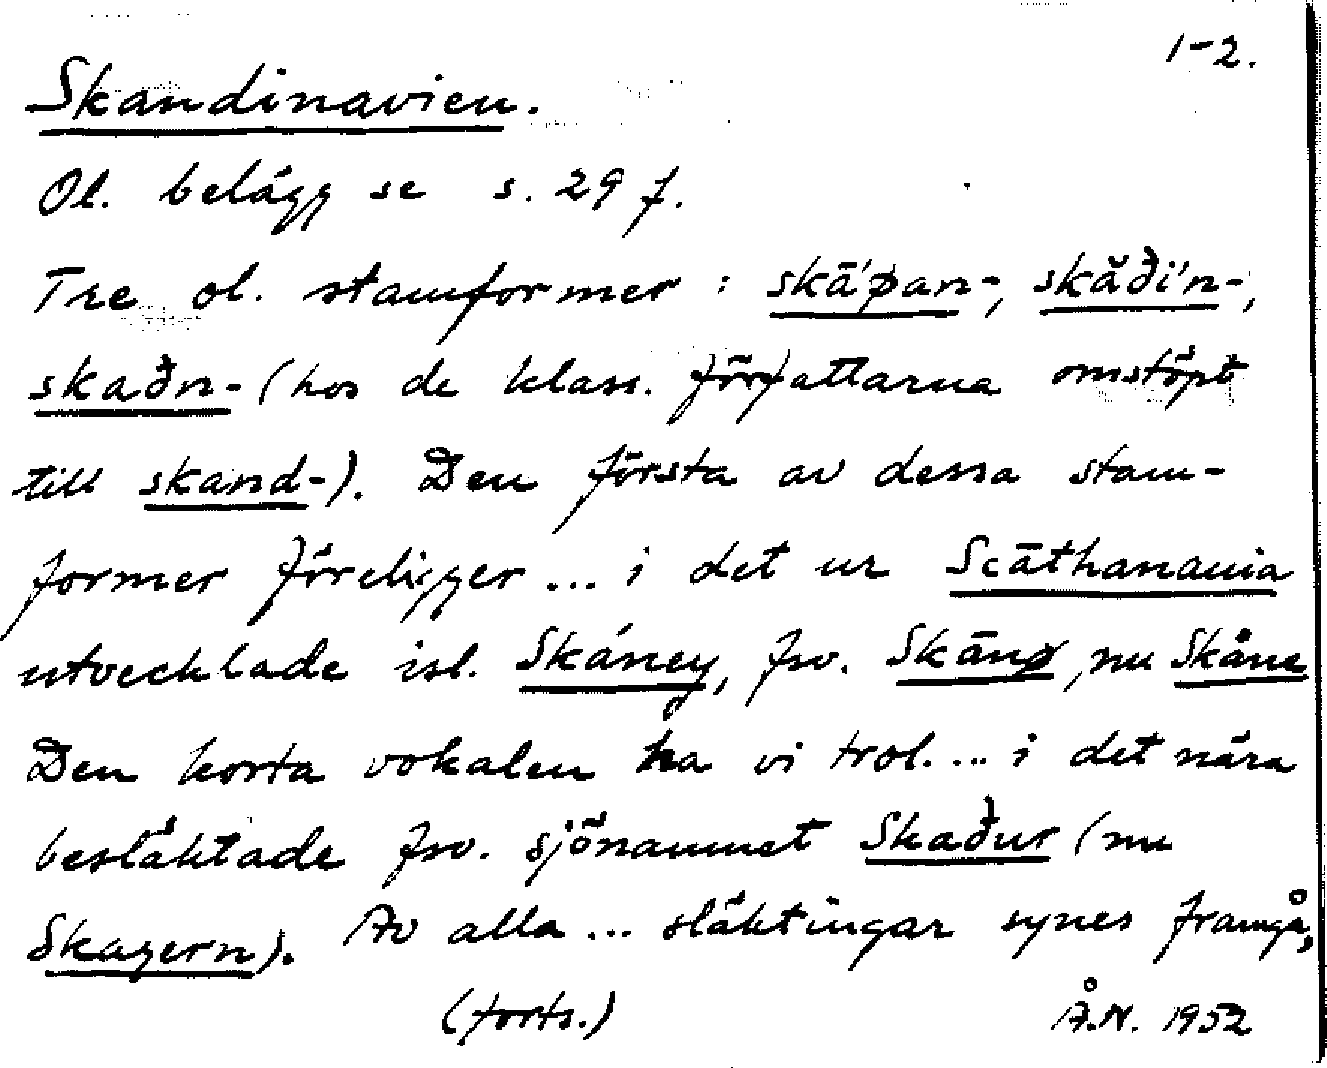 1-2.
Skandinavien.
Ol. belägg se s. 29 f.
Tre ol. stamformer: skā́þan-, skăðí'n-,
skaðn- (hos de klass. författarna omstöpt
till skand-). Den första av dessa stam-
former föreligger ... i det ur Scāthanauia
utvecklade isl. Skáney, fsv. Skānø, nu Skåne
Den korta vokalen ha vi trol. ... i det nära
besläktade fsv. sjönamnet Skaður (nu
Skagern). Av alla ... släktingar synes framgå,
(forts.) Å.N. 1952